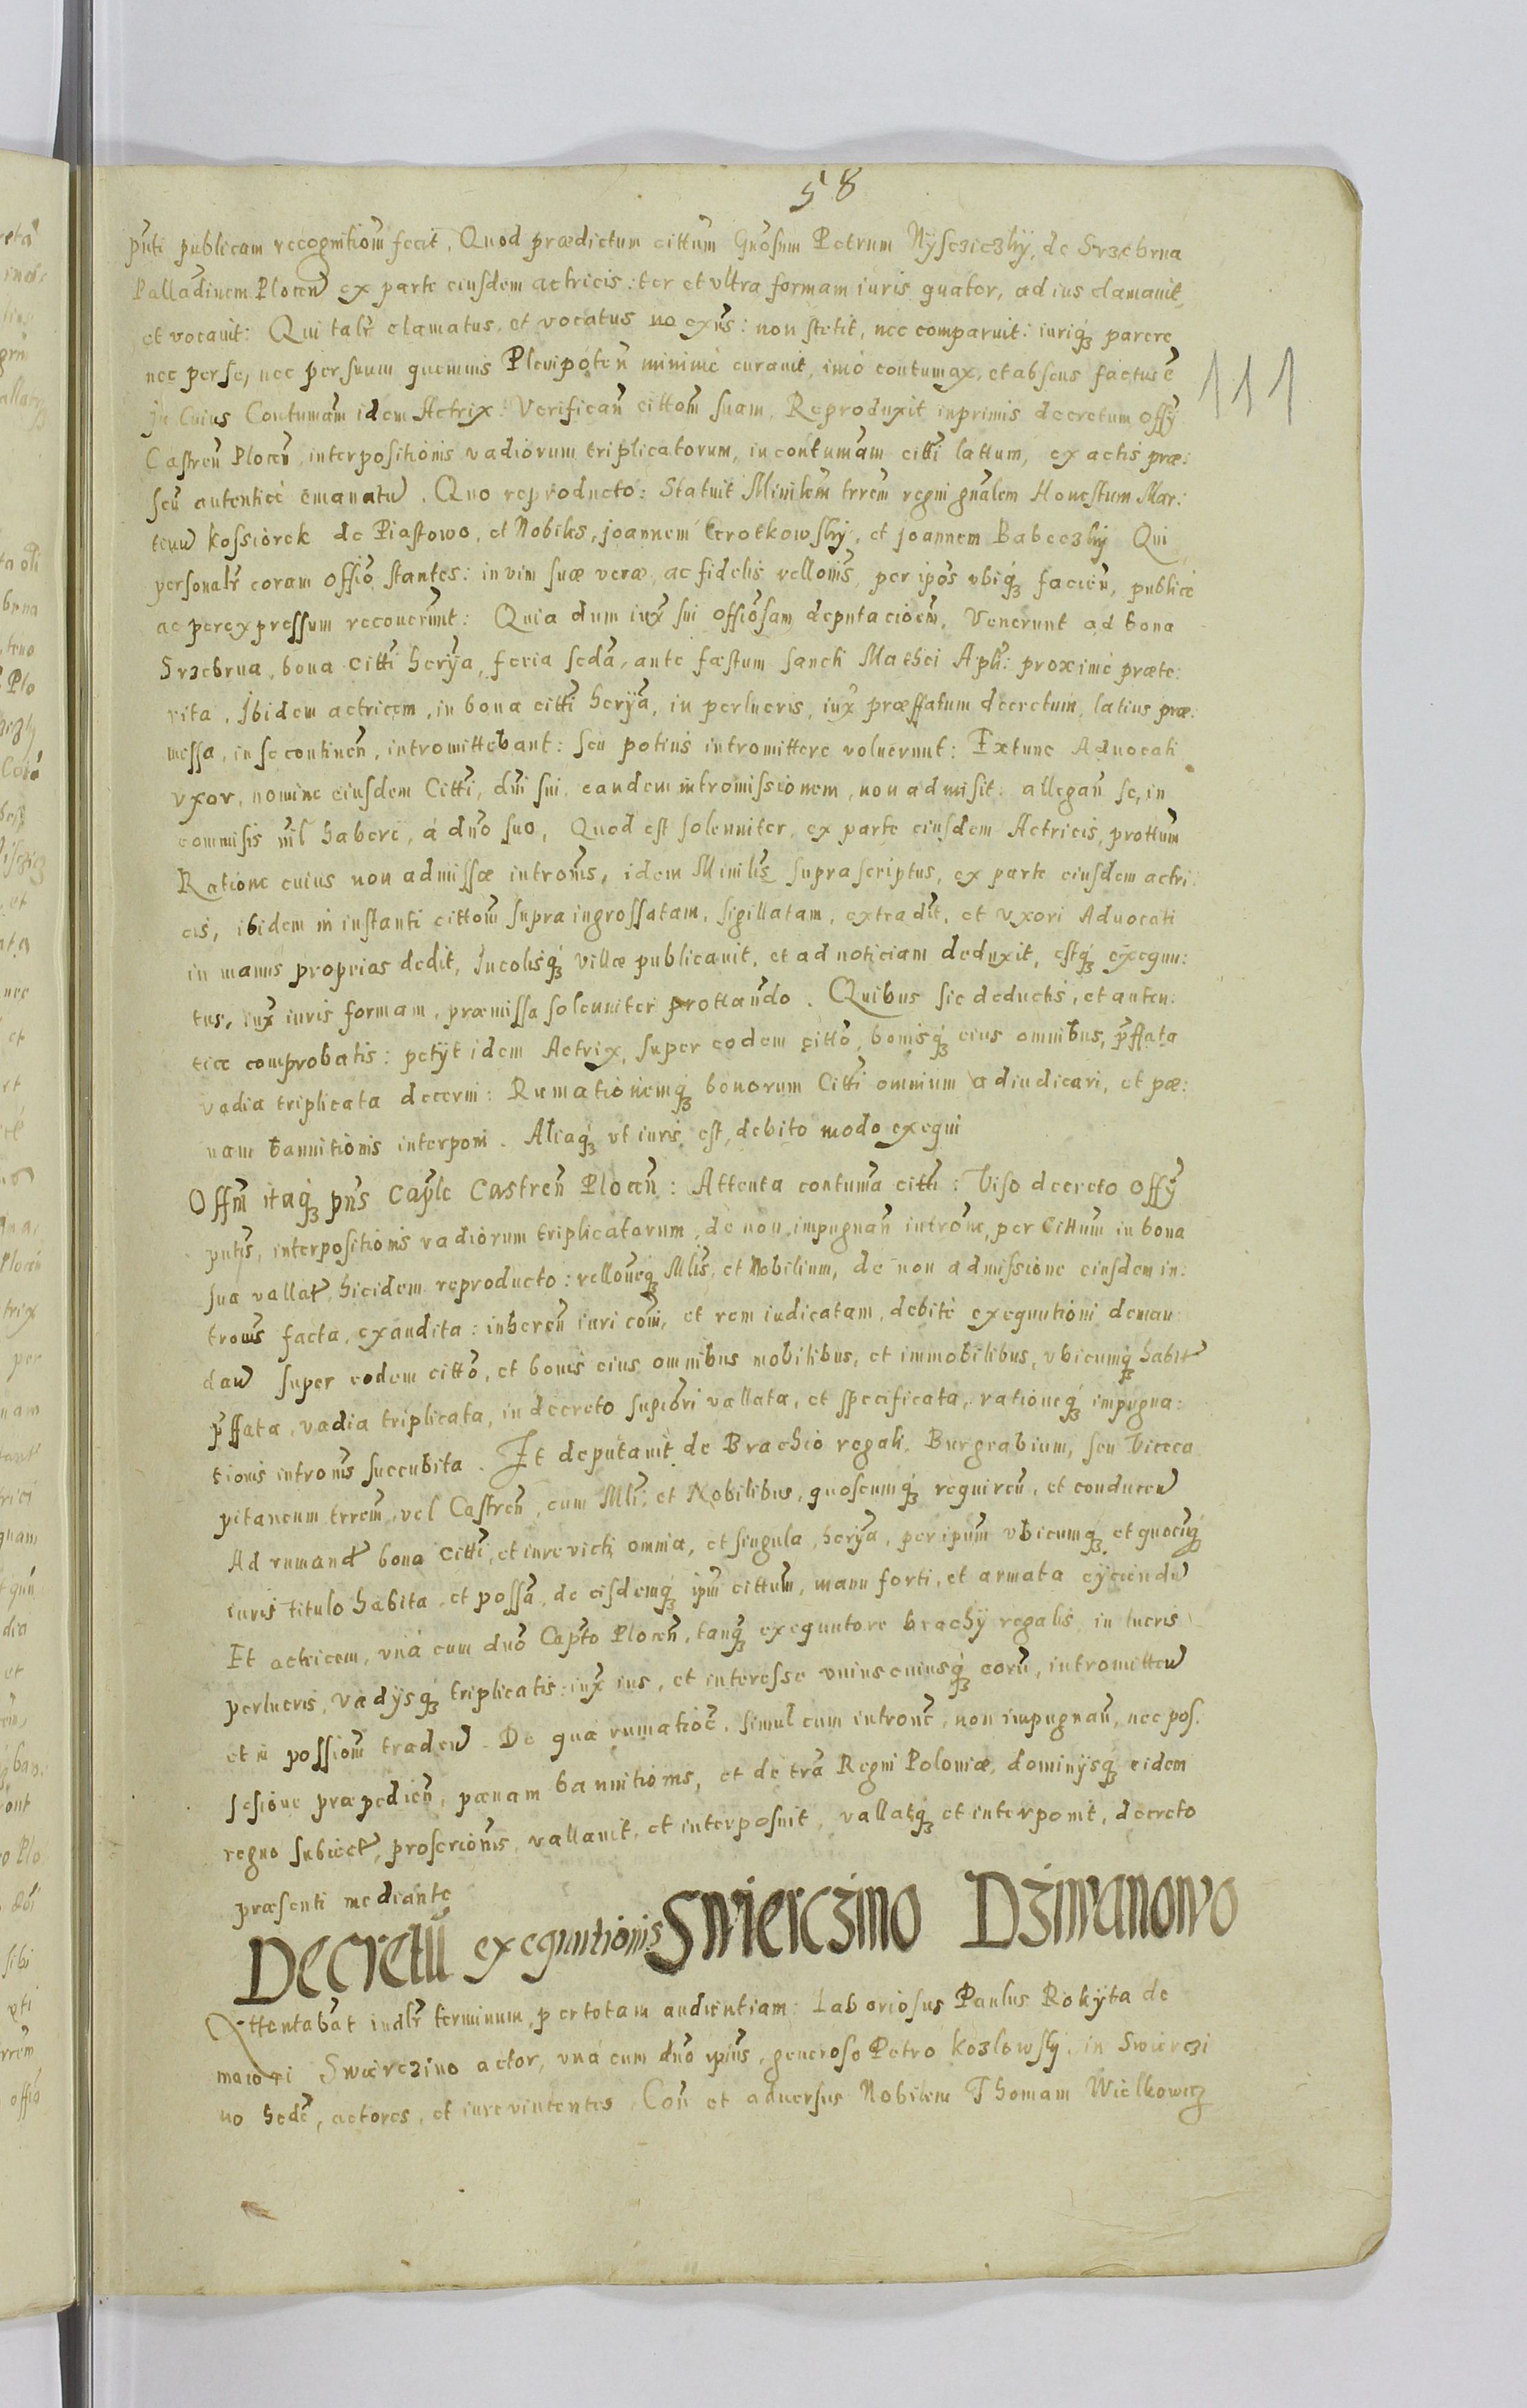 58
pnti publicam recognitiom fecit, Quod prædictum cittum Gnosum Petrum Nyscziczky, de Srzebrna
Palladinem Plocen ex parte eiusdem actricis: ter et vltra formam iuris quater, ad ius clamauit,
et vocauit: Qui talr clamatus, et vocatus no exns: non stetit, nec comparuit: iuriq3 parere
nec per se, nec per suum quemuis Plenipoten minimè curauit, imò contumax, et absens factus ẽ
111
In Cuius Contumam idem Actrix: Verifican cittom suam, Reproduxit inprimis decretum offy
Castren Plocen, interpositionis vadiorum triplicatorum, in contumam citti lattum, ex actis præ:
sen autenticè emanatu. Quo reproducto: Statuit Minilem trrem regni gnalem Honestum Mar:
tinu Kossiorek de Piastowo, et Nobiles, joannem Crotkowsky, et joannem Babeczky Qui
personalr coram offio stantes: in vim suæ veræ, ac fidelis rellonis, per ipos vbiq3 facien, publicè
ac per expressum recouerunt: Quia dum iux sui offiosam deputacioem, Venerunt ad bona
Srzebrna, bona citti herya, feria seda, ante fæstum sancti Mathei Apli: proximè præte:
rita, Ibidem actricem, in bona citti herya, in perlucris, iux præffatum decretum, latius præ:
missa, in se continen, intromittebant: seu potius intromittere voluerunt: Extunc Aduocati
vxor, nomine eiusdem Citti, dni sui, eandem intromissionem, non admisit: allegan se, in
commisis nil habere, á dno suo, Quod est solenniter, ex parte eiusdem Actricis, prottum
Ratione cuius non admissæ introms, idem Minilis suprascriptus, ex parte eiusdem actri:
cis, ibidem in instanti cittom supra ingrossatam, sigillatam, extradit, et vxori Aduocati
in manus proprias dedit, Incolisq3 villæ publicauit, et ad noticiam deduxit, estq3 exequu:
tus, iux iuris formam, præmissa solenniter prottando. Quibus sic deductis, et auten:
ticè comprobatis: petyt idem Actrix, super eodem citto, bonisq3 eius omnibus, pffata
vadia triplicata decerni: Rumationemq3 bonorum Citti omnium adiudicari, et pæ:
nam bannitionis interponi. Aliaq3 vt iuris est, debito modo exequi
Offm itaq3 pns Caple Castren Plocen: Attenta contuma citti: Viso decreto offy
pntis, interpositionis vadiorum triplicatorum, de non impugnan introne, per Cittum in bona
sua vallat, hicidem reproducto: relloneq3 Mlis, et Nobilium, de non admissione eiusdem in:
troms facta, exaudita: inheren iuri com, et rem iudicatam, debitè exequutioni deman
dan super eodem citto, et bonis eius omnibus mobilibus, et immobilibus, vbicumq3 habit
pffata, vadia triplicata, in decreto supiori vallata, et specificata, rationeq3 impugna:
tionis introms succubita. Et deputauit de Brachio regali, Burgrabium, seu Viceca
pitaneum trrem, vel Castren, cum Mli: et Nobilibus, quoscumq3 requiren, et conducen
Ad rumand bona Citti, et iure victi omnia, et singula, herya, per ipum vbicumq3 et quocuq3
iuris titulo habita, et possa, de eisdemq3 ipm cittum, manu forti, et armata eyciendu
Et actricem, vná cum dno Capto Plocen, tanq3 exequutore brachy regalis in lucris
perlucris, vadysq3 triplicatis: iux ius, et interesse vniuscuiusq3 coru, intromitten
et in possiom traden. De qua rumatioe, simul cum introne, non impugnan, nec pos:
sesione præpedien, pænam bannitionis, et de tra Regni Poloniæ, dominysq3 eidem
regno subiect, proscrionis, vallauit, et interposuit, vallatq3 et interponit, decreto
præsenti mediante
Decretu exequutionis Swierczino Dziwanowo
Attentabat iudlr terminum, per totam audientiam: Laboriosus Paulus Rokyta de
maiori Swierczino actor, vná cum dno ipius, generoso Petro Kozlowsky, in Swierczi
no hede, actores, et iure vintentes, Con et aduersus Nobilem Thomam Wielkowicz